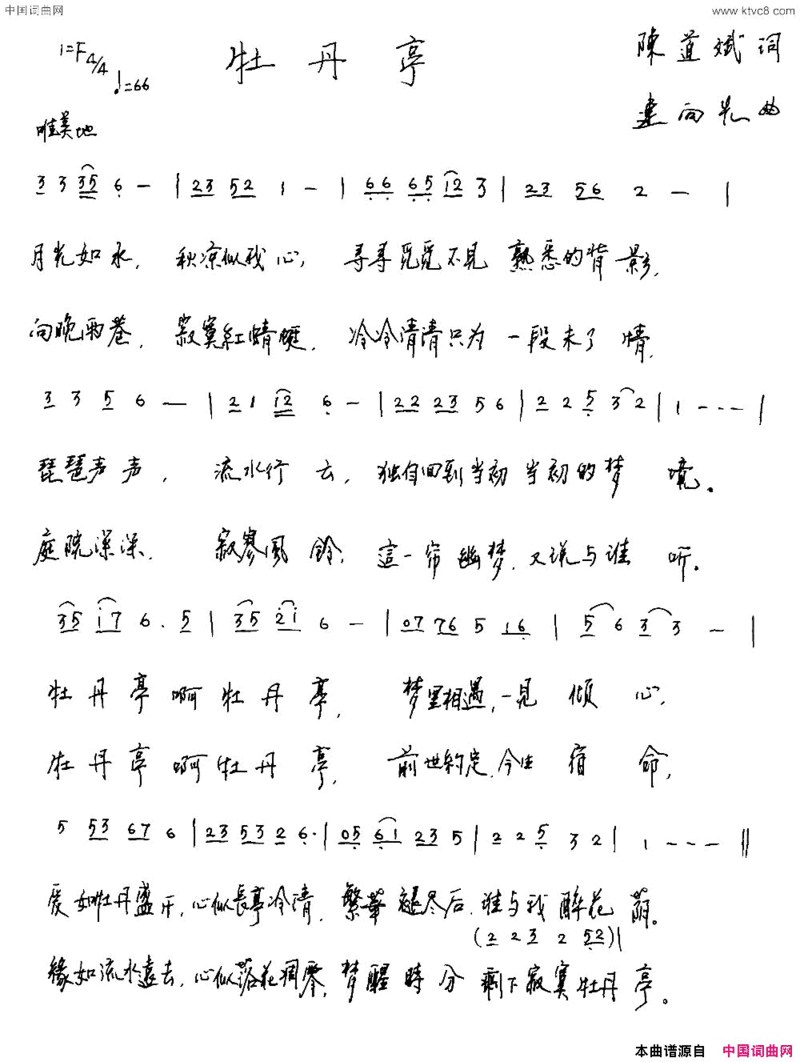 中国词曲网 www.ktvc8.com
1=F 4/4 ♩=66 牡丹亭 陳道斌词
唯美地 建向光曲
3 3 35 6 — | 23 52 1 — | 66 65 12 3 | 23 56 2 — |
月光如水，秋凉似我心，寻寻觅觅不见熟悉的背影，
向晚雨巷，寂寞紅蜻蜓，冷冷清清只为一段未了情，
3 3 5 6 — | 2 1 12 6 — | 22 23 5 6 | 2 2 5 3 2 | 1 --- |
琵琶声声，流水行云，独自回到当初当初的梦境。
庭院深深，寂寥風鈴，這一帘幽梦，又说与谁听。
35 17 6. 5 | 35 21 6 — | 07 76 5 16 | 5 6 3 3 — |
牡丹亭啊牡丹亭，梦里相遇，一见倾心，
牡丹亭啊牡丹亭，前世约定，今生宿命，
5 53 67 6 | 23 53 2 6. | 05 61 23 5 | 2 2 5 3 2 | 1 --- ‖
爱如牡丹盛开，心似長亭冷清，繁華褪尽后，谁与我醉花荫。
(2 23 2 52)|
緣如流水遠去，心似落花凋零，梦醒時分剩下寂寞牡丹亭。
本曲谱源自 中国词曲网